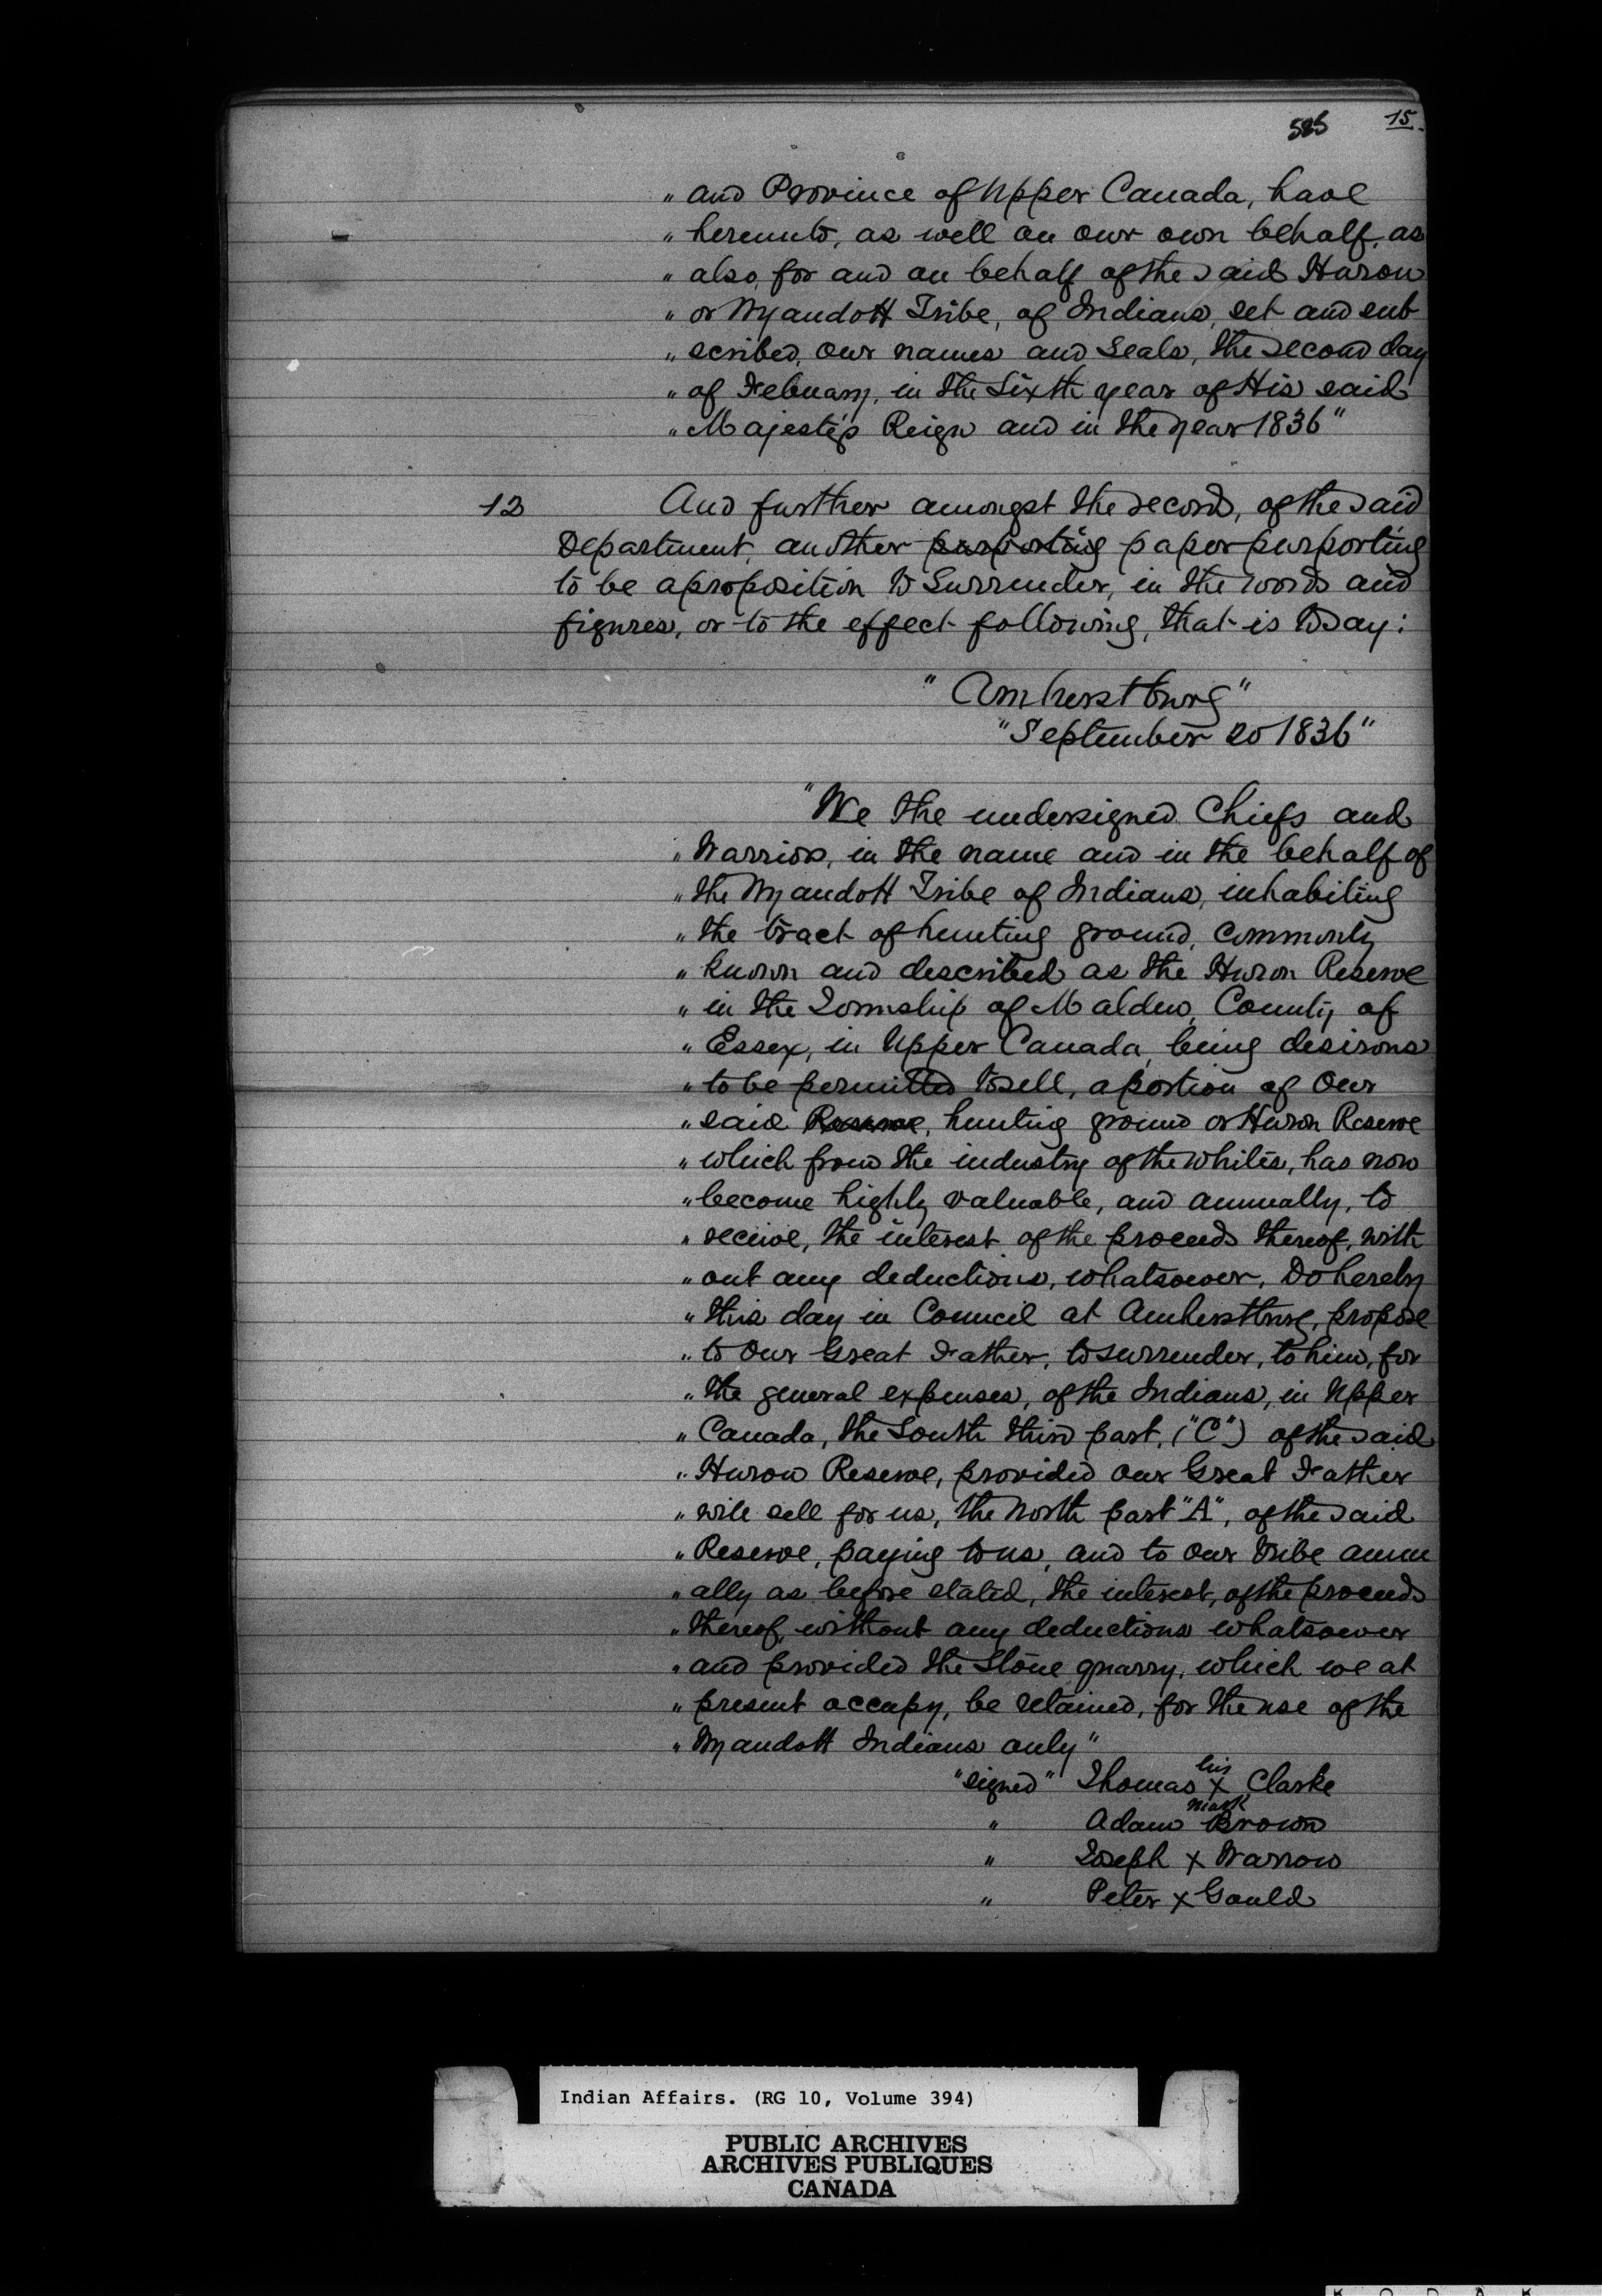 585 15.
" and Province of Upper Canada, have
" hereunto, as well on our own behalf, as
" also, for and on behalf of the said Huron
" or Wyandott Tribe, of Indians, set and sub
" scribed, our names and Seals, the second day
" of Febuary, in the Sixth year of His said
" Majestys Reign and in the year 1836"
12 And further amongst the records, of the said
Department, another purporting paper purporting
to be a proposition to Surrender, in the words and
figures, or to the effect following, that is to say:
" Amherstburg"
"September 20 1836"
"We the undersigned Chiefs and
" Warriors, in the name and in the behalf of
" the Wyandott Tribe of Indians, inhabiting
" the tract of hunting ground, commonly
" known and described as the Huron Reserve
" in the Township of Malden, County of
" Essex, in Upper Canada, being desirous
" to be permitted to sell, a portion of Our
" said Reserve, hunting ground or Huron Reserve
" which from the industry of the whites, has now
" become highly valuable, and annually, to
" receive, the interest of the proceeds thereof, with
" out any deductions, whatsoever, Do hereby
" this day in Council at Amherstburg, propose
" to Our Great Father, to surrender, to him, for
" the general expenses, of the Indians, in Upper
" Canada, the South third part, ("C") of the said
" Huron Reserve, provided our Great Father
" will sell for us, the North part "A", of the said
" Reserve, paying to us, and to our Tribe annu
" ally as before stated, the interest, of the proceeds
" thereof, without any deductions whatsoever
" and provided the Stone quarry, which we at
" present occupy, be retained, for the use of the
" Wyandott Indians only"
his
"signed" Thomas x Clarke
mark
" Adam Brown
" Joseph x Warrow
" Peter x Gould
Indian Affairs. (RG 10, Volume 394)
PUBLIC ARCHIVES
ARCHIVES PUBLIQUES
CANADA